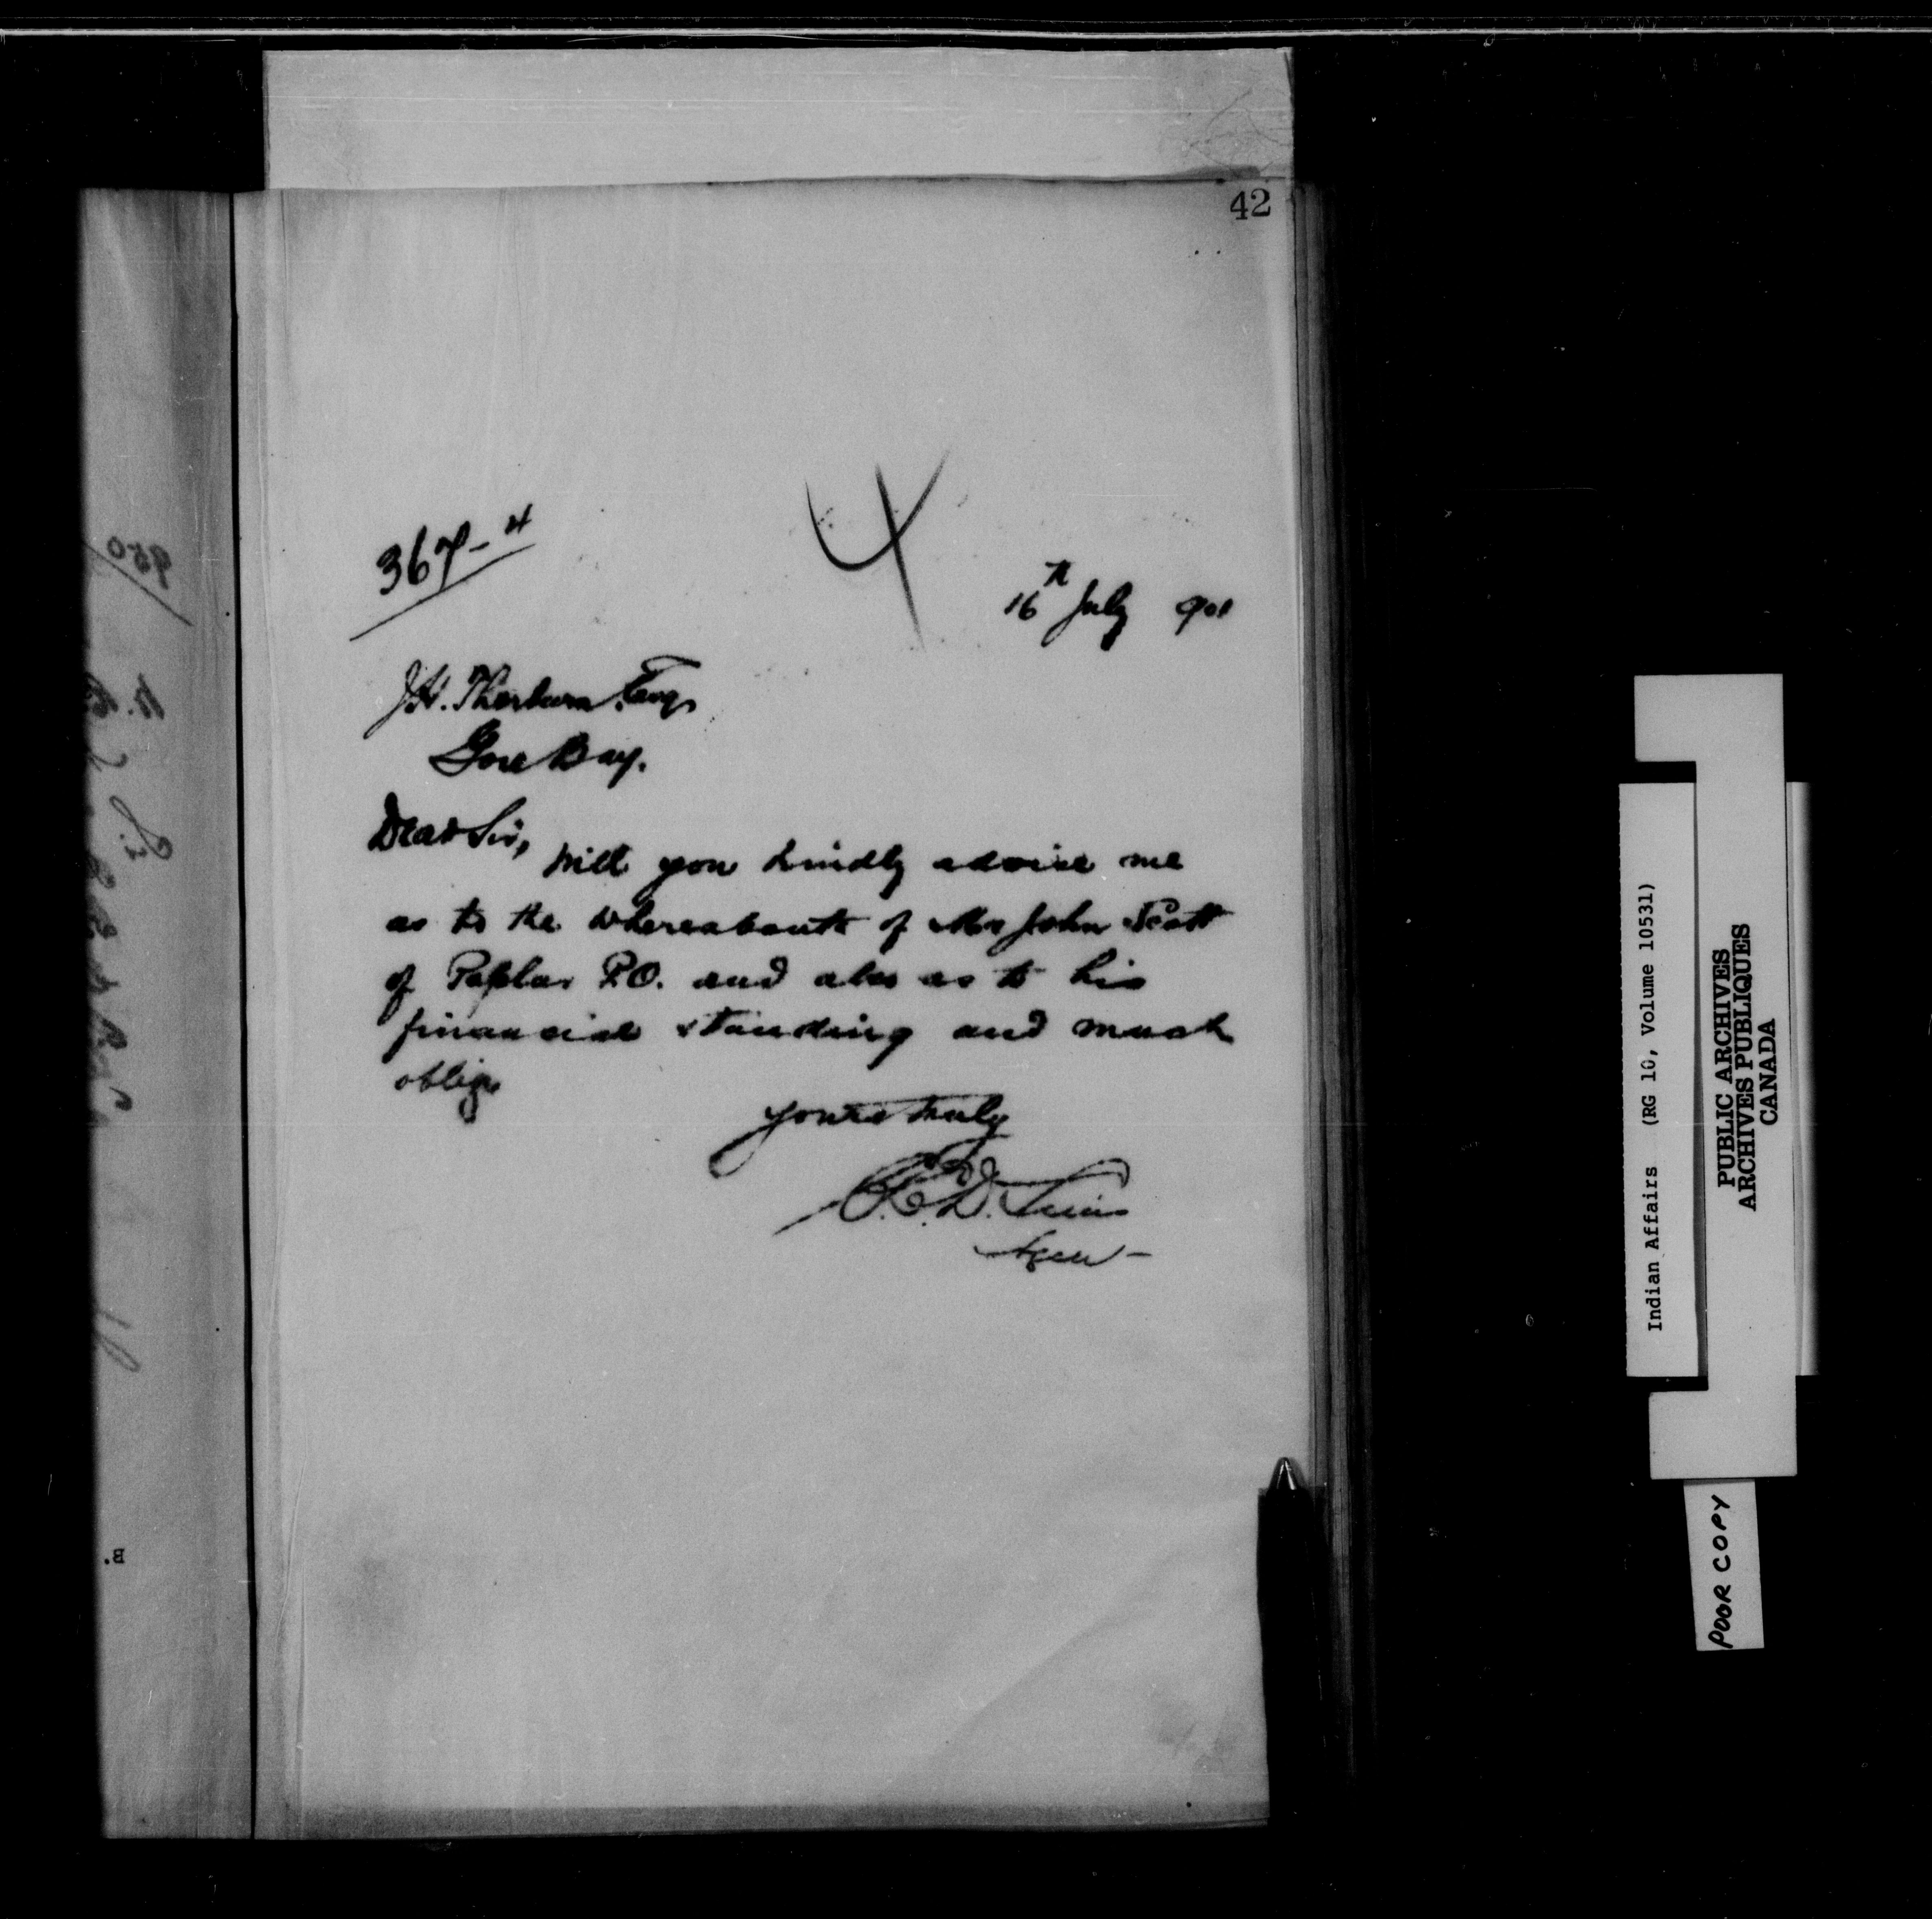 42
367-4
4
16th July 901
J.H. Thorburn Esq.
Gore Bay.
Dear Sir,
Will you kindly advise me
as to the whereabouts of Mr John Scott
of Poplar P.O. and also as to his
financial standing and much
oblige
Yours truly
C.D.
Agent
950
B.
Indian Affairs (RG 10, Volume 10531)
PUBLIC ARCHIVES
ARCHIVES PUBLIQUES
CANADA
POOR COPY